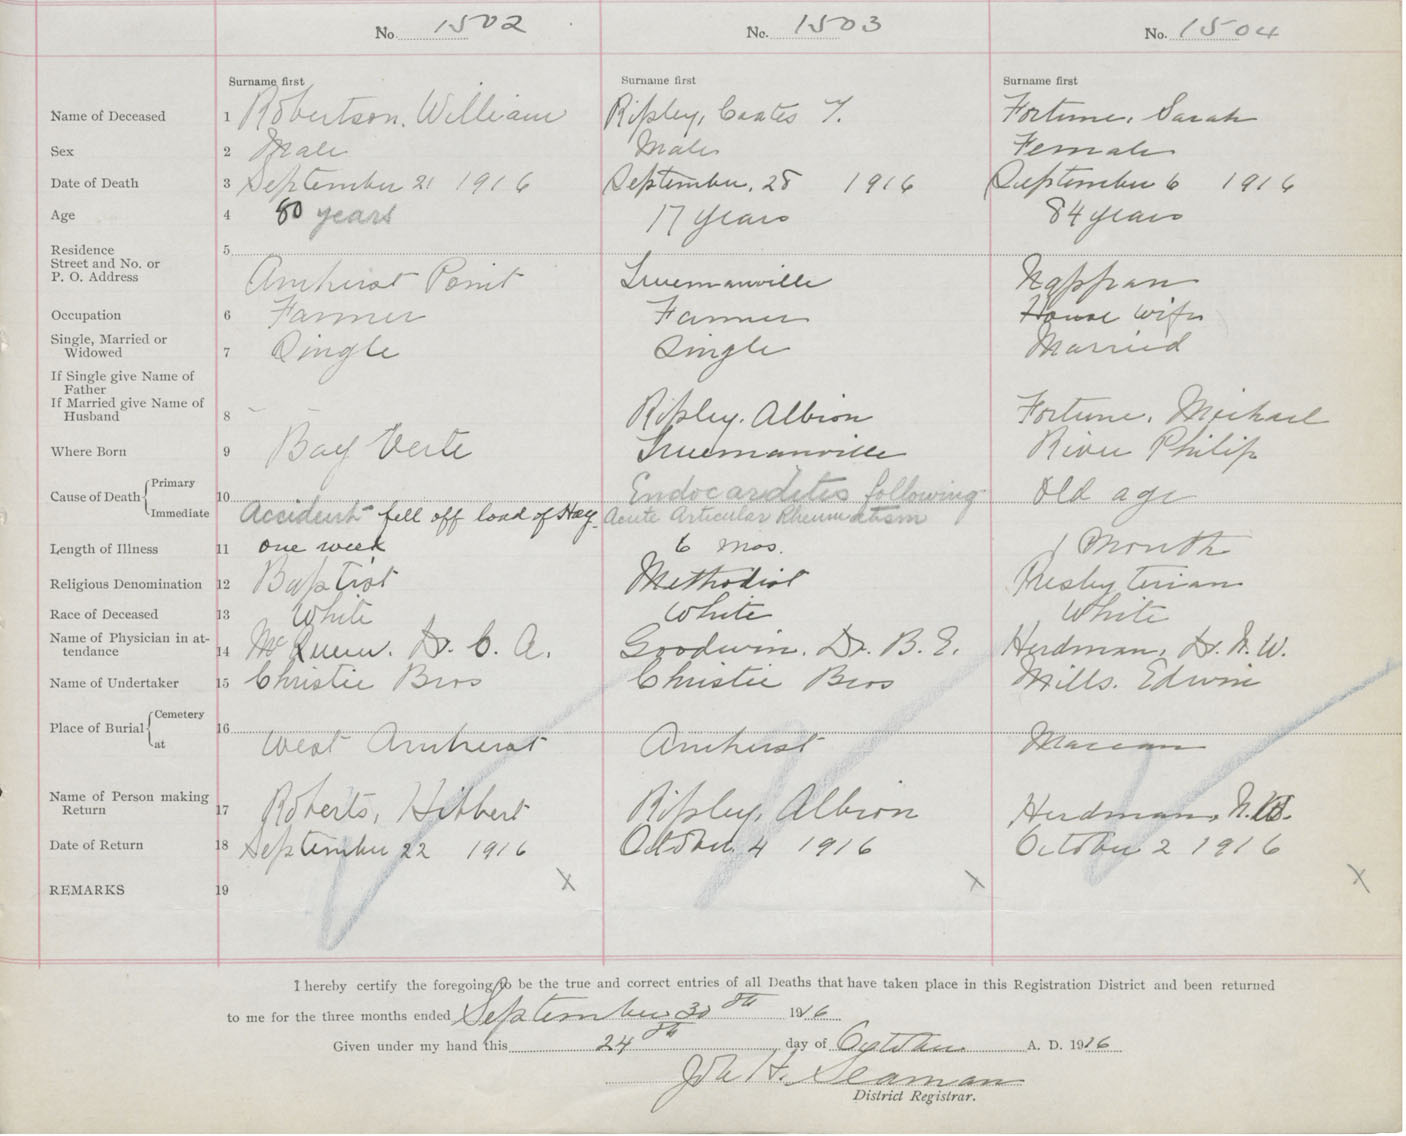 No. 1502 No. 1503 No. 1504
Surname first Surname first Surname first
Name of Deceased 1 Robertson, William Ripley, Coates Y. Fortune, Sarah
Sex 2 Male Male Female
Date of Death 3 September 21 1916 September, 28 1916 September 6 1916
Age 4 80 years 17 years 84 years
Residence 5
Street and No. or
P. O. Address Amherst Point Truemanville Nappan
Occupation 6 Farmer Farmer House wife
Single, Married or
Widowed 7 Single Single Married
If Single give Name of
Father
If Married give Name of
Husband 8 Ripley, Albion Fortune, Michael
Where Born 9 Bay Verte Truemanville River Philip
Cause of Death Primary 10 Endocarditis following Old age
Immediate Accident fell off load of Hay. Acute Articular Rheumatism
Length of Illness 11 one week 6 mos. 1 Month
Religious Denomination 12 Baptist Methodist Presbyterian
Race of Deceased 13 White White White
Name of Physician in at-
tendance 14 McQueen. Dr. C. A. Goodwin. Dr. B. E. Herdman, Dr. N. W.
Name of Undertaker 15 Christie Bros Christie Bros Mills. Edwin
Place of Burial Cemetery 16
at West Amherst Amherst Maccan
Name of Person making
Return 17 Roberts, Hibbert Ripley, Albion Herdman, N. W.
Date of Return 18 September 22 1916 October 4 1916 October 2 1916
REMARKS 19 X X X
I hereby certify the foregoing to be the true and correct entries of all Deaths that have taken place in this Registration District and been returned
to me for the three months ended September 30th 1916
Given under my hand this 24th day of October A. D. 1916
Seaman
District Registrar.